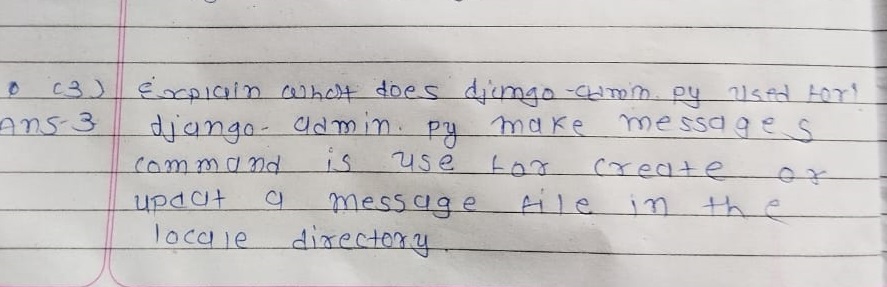 (3) Explain what does django-admin.py used for?
Ans-3 django-admin.py make messages
command is use for create or
updat a message file in the
locale directory.